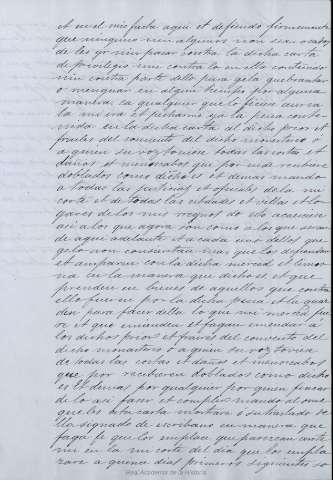 et en el mi fecha aqui et defiendo firmemente
que ninguno nin algunos non sean osados
de les yr nin pasar contra la dicha carta
de privilegio nin contra lo en ella contenido
nin contra parte dello para gela quebrantar
o menguar en algun tiempo por alguna
manera ca qualquier que lo ficiese auria
la mi ira et pecharme ya la pena conte
nida en la dicha carta al dicho prior et
frailes del convento del dicho monesterio o
a quien su voz toviese todas las costas et
daños et menoscabos que por ende recibiere
doblados como dicho es et demas mando
a todas las justicias et oficiales de la mi
corte et de todas las cibdades et villas et lo
gares de los mis regnos do esto acaesciere
asi a los que agora son como a los que seran
de aqui adelante et a cada uno dellos que
gelo non consientan mas que los defiendan
et amparen con la dicha merced et
en la manera que dicho es et que
prenden en bienes de aquellos que contra
ello fueren por la dicha pena et la guar
den para facer della lo que mi merced fue
re et que emienden et fagan emendar a
los dichos prior et frailes del convento del
dicho monesterio o a quien su voz toviere
de todas las costas et daños et menoscabos
que por recibieren doblados como dicho
es et demas por qualquier por quien fincar
de lo asi facer et complir mando al ome
que les esta carta mostrare o su traslado de
lla signado de escribano en manera que
faga fe que los emplace que parescan ante
mi en la mi corte del dia que los empla
zare a quince dias primeros siguientes so
Real Academia de la Historia